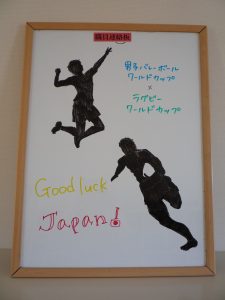 職員連絡板
男子バレーボール
ワールドカップ
×
ラグビー
ワールドカップ
Good luck
Japan!